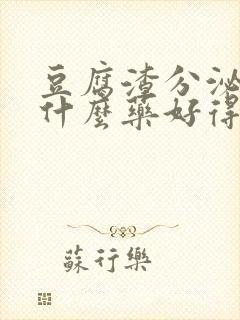 豆腐渣分泌
什麼藥好得
蘇行樂